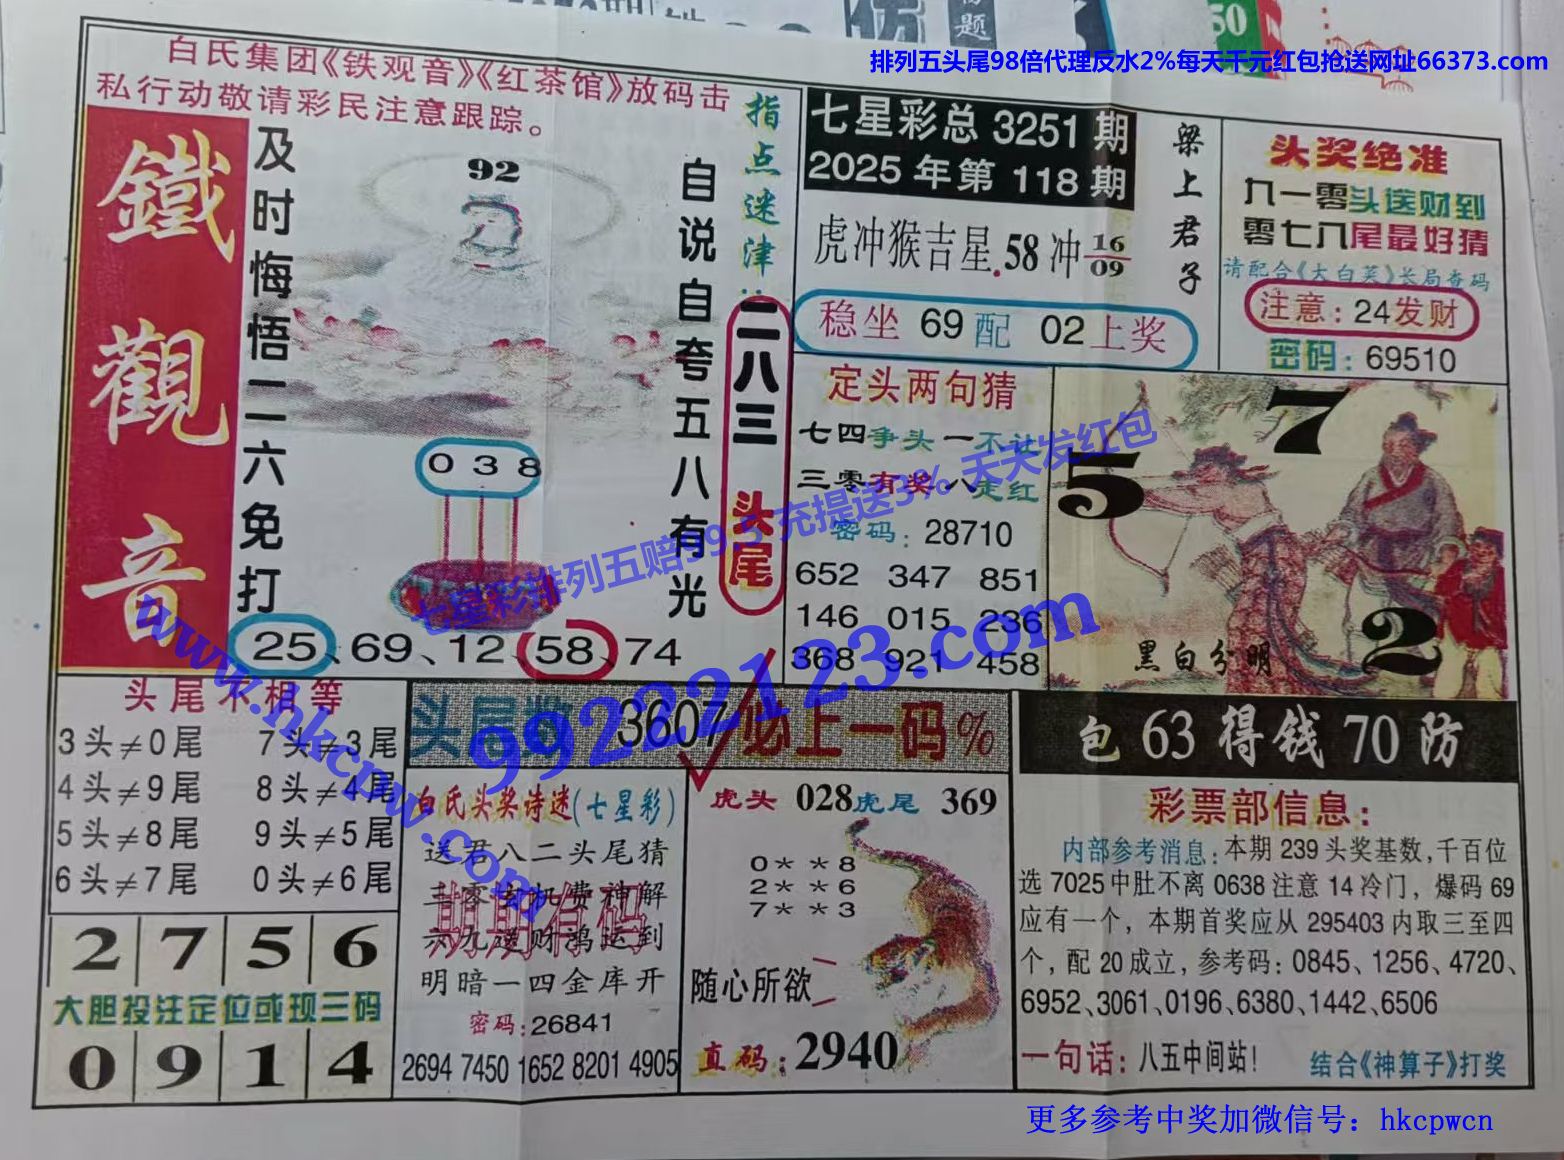 排列五头尾98倍代理反水2%每天千元红包抢送网址66373.com
白氏集团《铁观音》《红茶馆》放码击
私行动敬请彩民注意跟踪。
鐵觀音
及时悔悟二一六免打
92
038
自说自夸五八有光
指点迷津:
二八三头尾
25、69、12、58、74
七星彩总3251期
2025年第118期
虎冲猴吉星.58冲16/09
梁上君子
稳坐69配02上奖
头奖绝准
九一零头送财到
零七八尾最好猜
请配合《大白菜》长局查码
注意:24发财
密码:69510
定头两句猜
七四争头一不让
三零有奖八走红
密码:28710
652 347 851
146 015 236
368 921 458
5
7
2
黑白分明
包63得钱70防
头尾不相等
3头≠0尾 7头≠3尾
4头≠9尾 8头≠4尾
5头≠8尾 9头≠5尾
6头≠7尾 0头≠6尾
2 7 5 6
大胆投注定位或现三码
0 9 1 4
头尾数 3607 必上一码%
白氏头奖诗谜(七星彩)
送君八二头尾猜
三零玄机费神解
六九送财鸿运到
明暗一四金库开
期期有码
密码:26841
2694 7450 1652 8201 4905
虎头 028 虎尾 369
0**8
2**6
7**3
随心所欲
直码:2940
彩票部信息:
内部参考消息:本期239头奖基数,千百位
选7025中肚不离0638注意14冷门，爆码69
应有一个，本期首奖应从295403内取三至四
个，配20成立，参考码:0845、1256、4720、
6952、3061、0196、6380、1442、6506
一句话:八五中间站!
结合《神算子》打奖
七星彩排列五赔99.5充提送3% 天天发红包
99222123.com
www.hkcpw.com
更多参考中奖加微信号：hkcpwcn